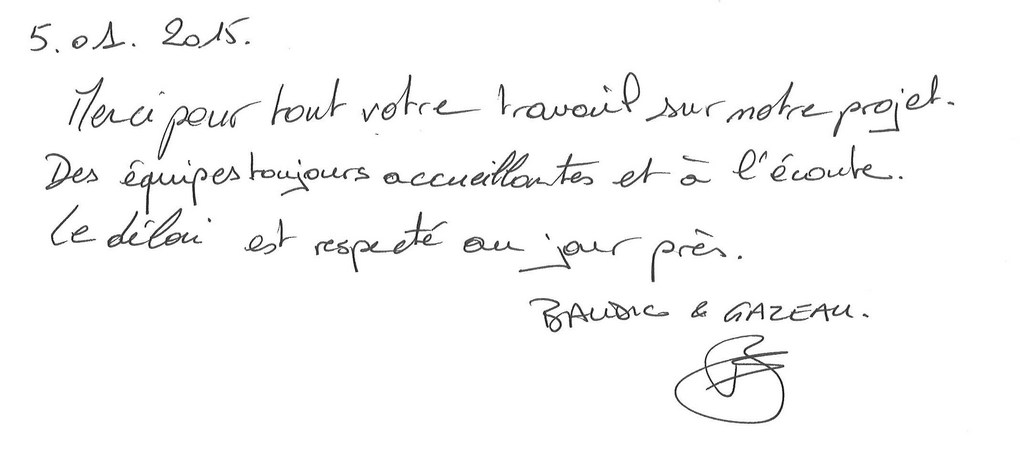 5.01.2015.
Merci pour tout votre travail sur notre projet.
Des équipes toujours accueillantes et à l'écoute.
Le délai est respecté au jour près.
& GAZEAU.